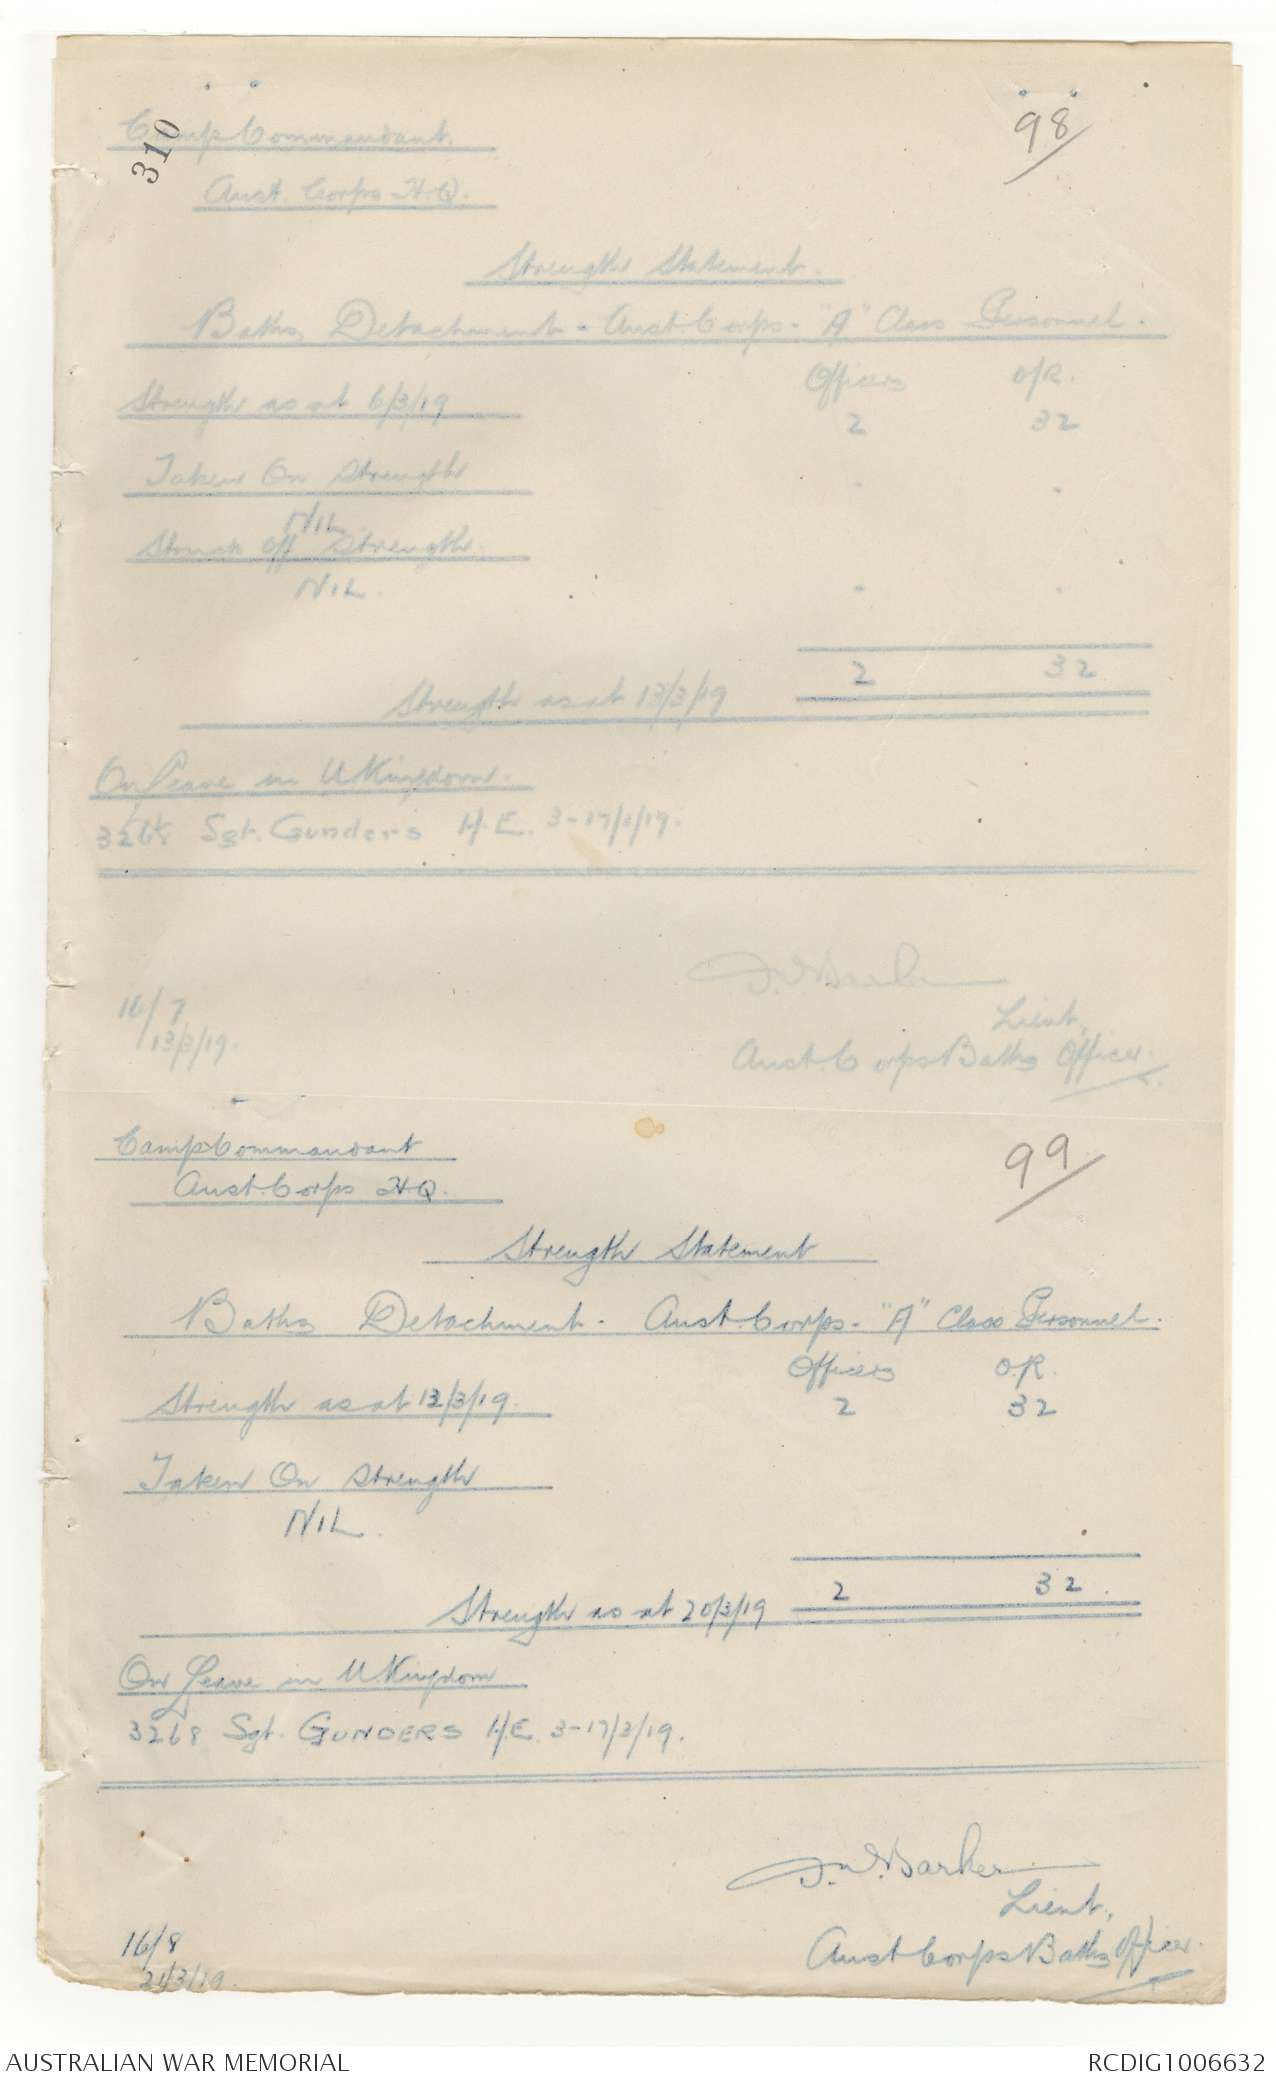 310
98
Camp Commandant,
Aust. Corps H.Q.
Strength Statement.
Baths Detachment - Aust. Corps - "A" Class Personnel.
Officers O/R.
Strength as at 6/3/19 2 32
Taken On Strength - -
NIL
Struck off Strength.
NIL. - -
Strength as at 13/3/19 2 32
On Leave in U Kingdom.
3268 Sgt. Gunders H.E. 3-17/3/19.
Barker
Lieut,
16/7
13/3/19.
Aust. Corps Baths Officer.
99
Camp Commandant
Aust. Corps H.Q.
Strength Statement
Baths Detachment - Aust. Corps - "A" Class Personnel.
Officers O.R.
Strength as at 13/3/19. 2 32
Taken On Strength
NIL.
Strength as at 20/3/19 2 32.
On Leave in U Kingdom
3268 Sgt. GUNDERS H.E. 3-17/3/19.
Barker
Lieut,
Aust Corps Baths Officer.
16/8
21/3/19.
AUSTRALIAN WAR MEMORIAL
RCDIG1006632